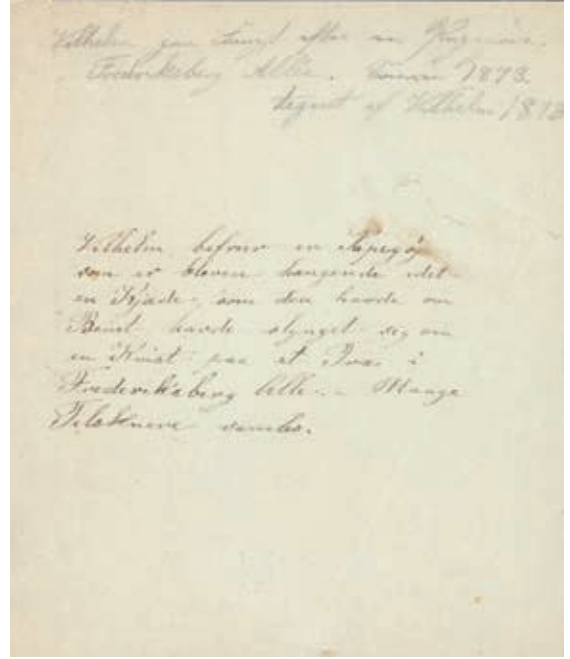 Vilhelm paa Langs efter en
Frederiksberg Allée. 1873.
tegnet af Vilhelm 1873
Vilhelm befrier en Papegøj
som er bleven hangende idet
en Kjæde, som den havde om
Benet havde slynget sig om
en Kvist paa et Træ i
Frederiksberg Alle. Mange
Tilskuere samles.